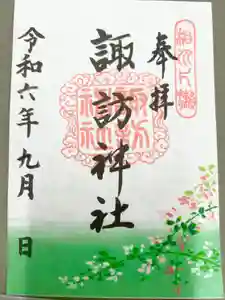 奉拝
諏訪神社
令和六年九月 日